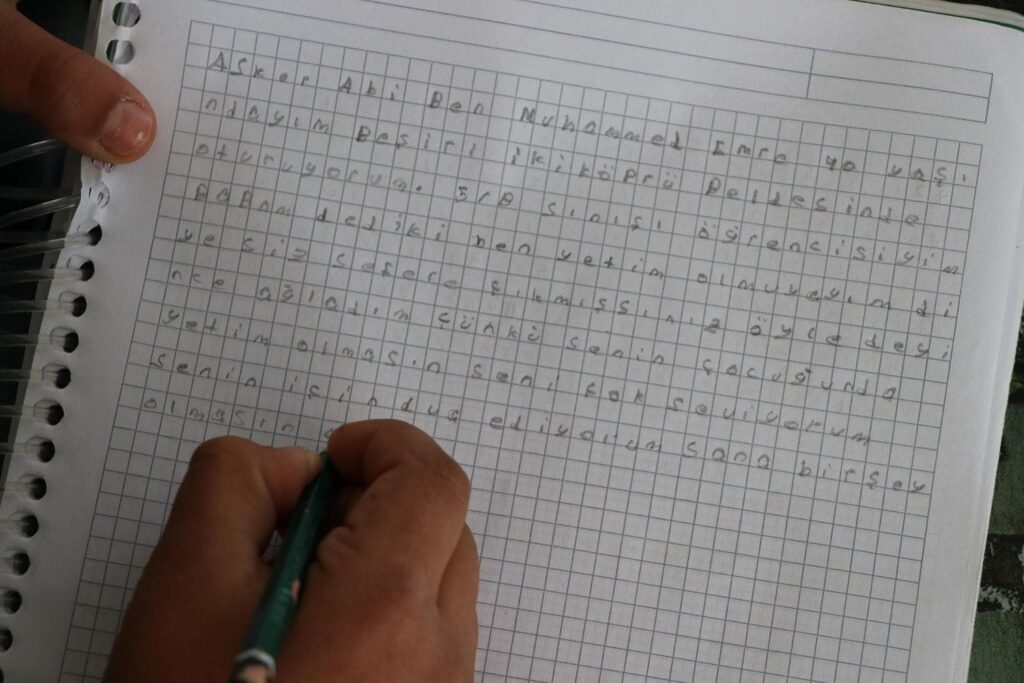 Asker Abi Ben Muhammed Emre 40 yaşı
ndayım Beşiri ikiköprü Beldesinde
oturuyorum. 3rB sınıfı öğrencisiyim
BABam dediki ben yetim olmuyayım di
ye siz sefere çıkmışsınız öyle deyi
nce ağladım çünkü senin çocuğunda
yetim olmasın seni çok seviyorum
senin için dua ediyorum sana birşey
olmasın